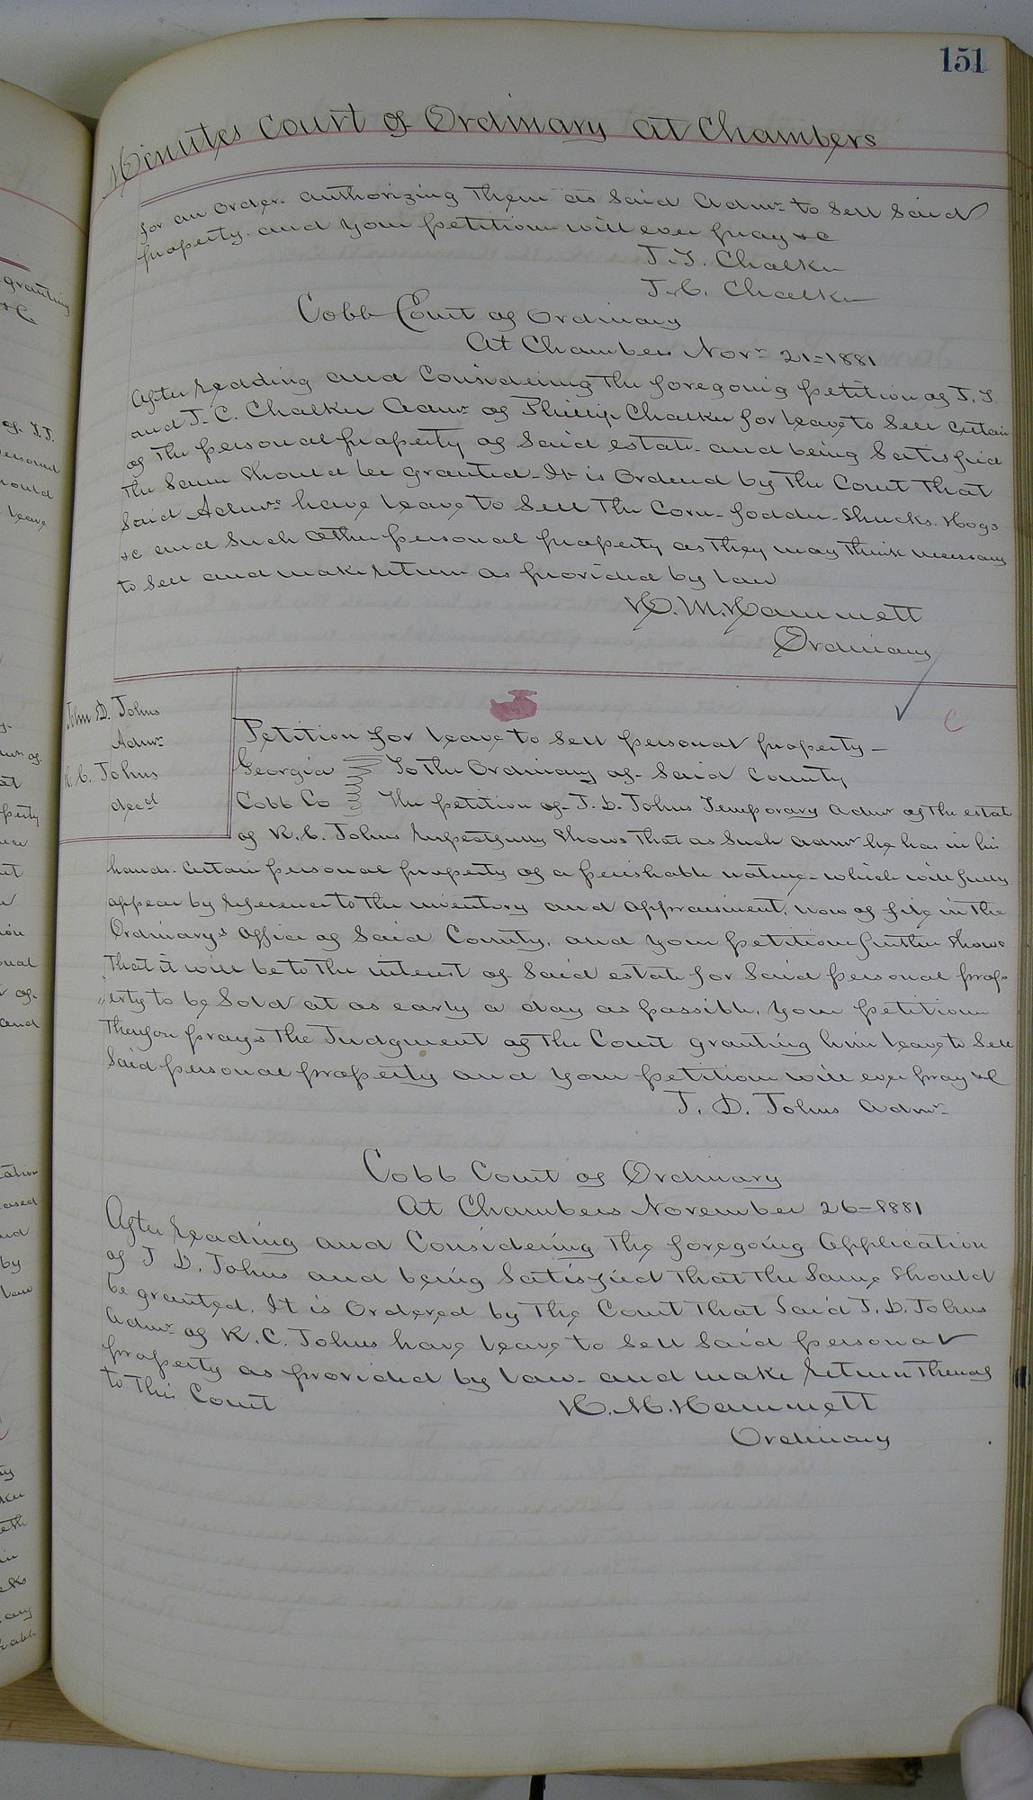 151
Minutes Court of Ordinary at Chambers
for an order authorizing them as Said Admr to Sell Said
property. and your petitioner will ever pray &c
J. F. Chalker
J. C. Chalker
Cobb Court of Ordinary
At Chambers Novr 21=1881
After Reading and Considering the foregoing petition of J. F.
and J. C. Chalker Admr of Phillip Chalker for leave to Sell Certain
of the personal property of Said estate and being Satisfied
the Same Should be granted_ It is Ordered by the Court that
Said Admrs have leave to Sell the Corn_ fodder_ Shucks. Hogs
&c and Such other personal property as they may think necessary
to Sell and make return as provided by law
H. M. Hammett
Ordinary
C
John D. Johns
Admr
R. C. Johns
decd
Petition for leave to Sell personal property_
Georgia To the Ordinary of Said County
Cobb Co The petition of J. D. Johns Temporary Admr of the estate
of R. C. Johns respectfully Shows that as Such admr he has in his
hands. Certain personal property of a perishable nature_ which will fully
appear by reference to the inventory and appraisment. now of file in the
Ordinarys office of Said County. and your petitioner further Shows
that it will be to the interest of Said estate for Said personal prop-
"erty to be Sold at as early a day as possible. Your petitioner
therefore prays the Judgment of the Court granting him leave to Sell
Said personal property and your petitioner will ever pray &C
J. D. Johns Admr
Cobb Court of Ordinary
At Chambers November 26-1881
After Reading and Considering the foregoing Application
of J D. Johns and being Satisfied that the Same Should
be granted. It is Ordered by the Court that Said J. D. Johns
Admr of R. C. Johns have leave to Sell Said personal
property as provided by law_ and make return thereof
to this Court
H. M. Hammett
Ordinary